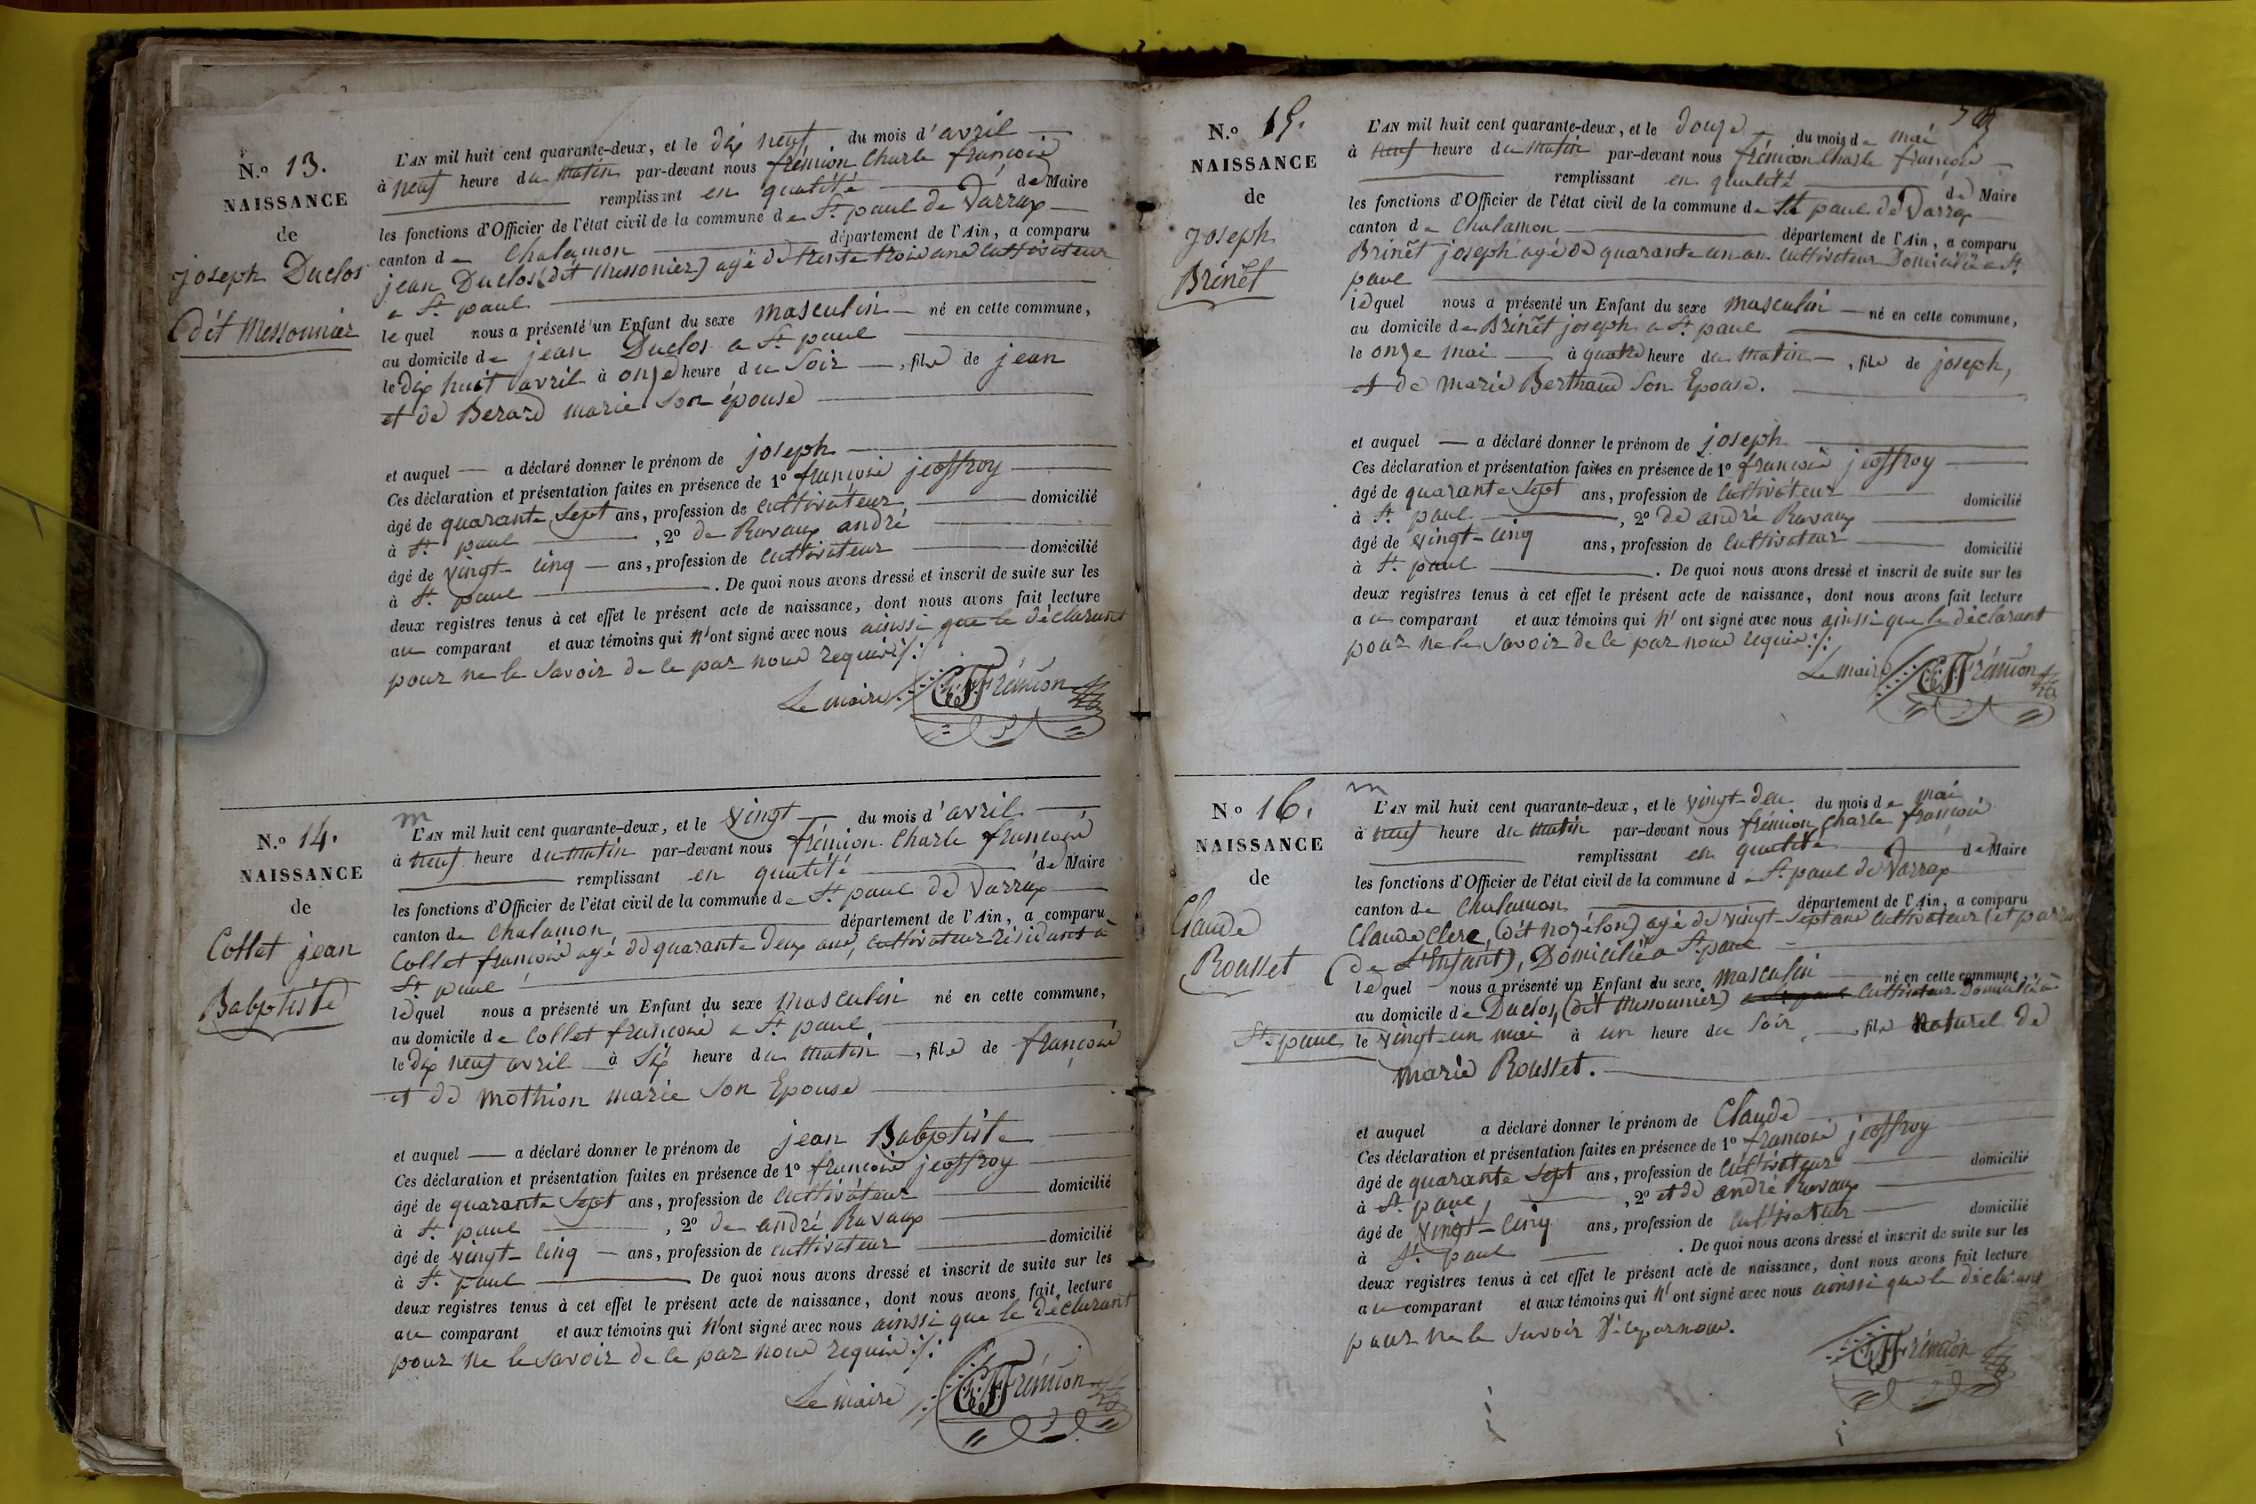 N.o 13.
NAISSANCE
de
joseph Duclos
dit Messonnier
L'AN mil huit cent quarante-deux, et le dix neuf du mois d'avril
à neuf heure du matin par-devant nous frémion Charle françois
remplissant en qualité de Maire
les fonctions d'Officier de l'état civil de la commune de St. paul de Varrax
canton de Chalamon département de l'Ain, a comparu
jean Duclos (dit Messonier) agé de trente trois ans Cultivateur
a St. paul
le quel nous a présenté un Enfant du sexe masculin né en cette commune,
au domicile de jean Duclos a St. paul
le dix huit avril à onze heure du Soir, fils de jean
et de Berard marie Son épouse
et auquel a déclaré donner le prénom de joseph
Ces déclaration et présentation faites en présence de 1o françois jeoffroy
âgé de quarante Sept ans, profession de Cultivateur domicilié
à St. paul, 2o de Ravaux andré
âgé de vingt-cinq ans, profession de Cultivateur domicilié
à St. paul. De quoi nous avons dressé et inscrit de suite sur les
deux registres tenus à cet effet le présent acte de naissance, dont nous avons fait lecture
au comparant et aux témoins qui n'ont signé avec nous ainssi que le déclarant
pour ne le Savoir de ce par nous requis ./.
Le maire CFFrémion
N.o 14.
NAISSANCE
de
Collet jean
Babptiste
m
L'AN mil huit cent quarante-deux, et le vingt du mois d'avril
à neuf heure du matin par-devant nous frémion Charle françois
remplissant en qualité de Maire
les fonctions d'Officier de l'état civil de la commune de St. paul de Varrax
canton de Chalamon département de l'Ain, a comparu
Collet françois agé de quarante deux ans, Cultivateur résidant à
St. paul
le quel nous a présenté un Enfant du sexe masculin né en cette commune,
au domicile de Collet françois a St. paul
le dix neuf avril à Six heure du matin, fils de françois
et de mothion marie Son Epouse
et auquel a déclaré donner le prénom de jean Babptiste
Ces déclaration et présentation faites en présence de 1o françois jeoffroy
âgé de quarante Sept ans, profession de Cultivateur domicilié
à St. paul, 2o de andré Ravaux
âgé de vingt-cinq ans, profession de Cultivateur domicilié
à St. paul De quoi nous avons dressé et inscrit de suite sur les
deux registres tenus à cet effet le présent acte de naissance, dont nous avons fait lecture
au comparant et aux témoins qui n'ont signé avec nous ainssi que le déclarant
pour ne le Savoir de ce par nous requis ./.
Le maire CFFrémion
N.o 15.
NAISSANCE
de
joseph
Brinet
L'AN mil huit cent quarante-deux, et le douze du mois de mai
à neuf heure du matin par-devant nous frémion Charle françois
remplissant en qualité de Maire
les fonctions d'Officier de l'état civil de la commune de St paul de Varrax
canton de Chalamon département de l'Ain, a comparu
Brinet joseph agé de quarante un an Cultivateur Domicilié a St.
paul
le quel nous a présenté un Enfant du sexe masculin né en cette commune,
au domicile de Brinet joseph a St. paul
le onze mai à quatre heure du matin, fils de joseph,
et de marie Berthaud Son Epouse.
et auquel a déclaré donner le prénom de joseph
Ces déclaration et présentation faites en présence de 1o françois jeoffroy
âgé de quarante Sept ans, profession de Cultivateur domicilié
à St. paul, 2o de andré Ravaux
âgé de vingt-cinq ans, profession de Cultivateur domicilié
à St. paul. De quoi nous avons dressé et inscrit de suite sur les
deux registres tenus à cet effet le présent acte de naissance, dont nous avons fait lecture
au comparant et aux témoins qui n'ont signé avec nous ainssi que le déclarant
pour ne le Savoir de ce par nous requis ./.
Le maire CFFrémion
No 16.
NAISSANCE
de
Claude
Rousset
m
L'AN mil huit cent quarante-deux, et le vingt-deu du mois de mai
à neuf heure du matin par-devant nous frémion Charle françois
remplissant en qualité de Maire
les fonctions d'Officier de l'état civil de la commune de St. paul de Varrax
canton de Chalamon département de l'Ain, a comparu
Claude Clerc, (dit nozélon) agé de vingt-Sept ans Cultivateur (et
de L'Enfant), Domicilié a St. paul
le quel nous a présenté un Enfant du sexe masculin né en cette commune,
au domicile de Duclos, (dit Messounier) a St. paul Cultivateur Domicilié à
St. paul le vingt-un mai à un heure du Soir, fils naturel de
marie Rousset.
et auquel a déclaré donner le prénom de Claude
Ces déclaration et présentation faites en présence de 1o françois jeoffroy
âgé de quarante Sept ans, profession de Cultivateur domicilié
à St. paul, 2o et de andré Ravaux
âgé de vingt-cinq ans, profession de Cultivateur domicilié
à St. paul. De quoi nous avons dressé et inscrit de suite sur les
deux registres tenus à cet effet le présent acte de naissance, dont nous avons fait lecture
au comparant et aux témoins qui n'ont signé avec nous ainssi que le déclarant
pour ne le Savoir
CFFrémion